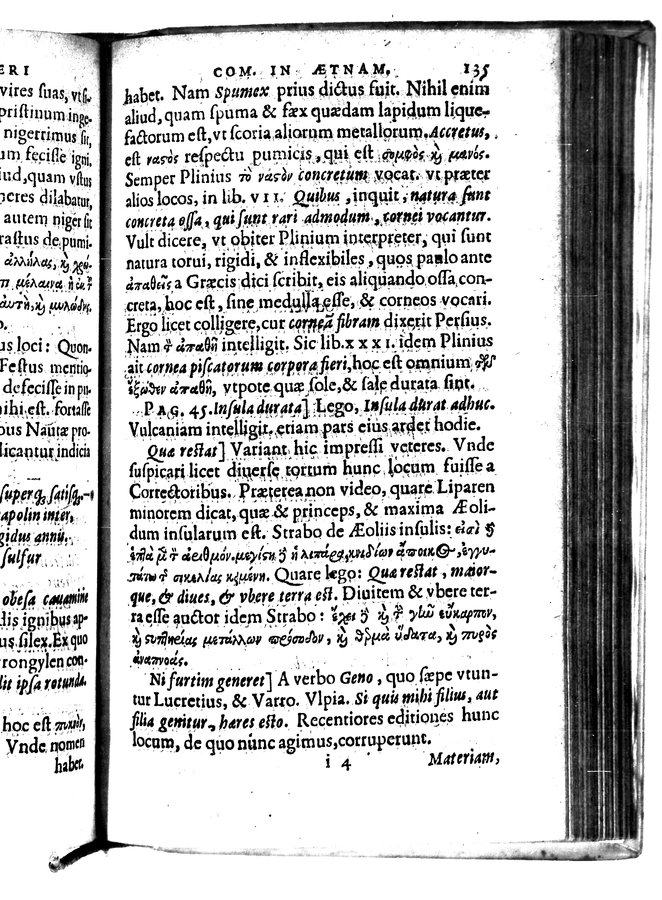 ERI
vires suas, vt si-
pristinum inge-
nigerrimus sit,
um fecisse igni,
ud, quam vstus
neres dilabatur,
autem niger sit
rastus de pumi-
μέλαινα
us loci: Quon-
Festus mentio-
defecisse in pu-
nihi est. fortasse
bus Nautæ pro-
licantur indicia
superq, satisq,
apolin inter,
gidus annu.
sulfur
obesa caminu
dis ignibus ap-
us silex. Ex quo
rongylen con-
lit ipsa rotunda.
hoc est
Vnde nomen
habet.
COM. IN ÆTNAM. 135
habet. Nam Spumex prius dictus fuit. Nihil enim
aliud, quam spuma & fæx quædam lapidum lique-
factorum est, vt scoria aliorum metallorum. Accretus,
est ναϛός respectu pumicis, qui est σομφὸς καὶ μανός.
Semper Plinius τὸ ναϛὸν concretum vocat. vt præter
alios locos, in lib. VII. Quibus, inquit, natura sunt
concreta ossa, qui sunt rari admodum, cornei vocantur.
Vult dicere, vt obiter Plinium interpreter, qui sunt
natura torui, rigidi, & inflexibiles, quos paulo ante
ἀπαθεῖς a Græcis dici scribit, eis aliquando ossa con-
creta, hoc est, sine medulla esse, & corneos vocari.
Ergo licet colligere, cur corneã fibram dixerit Persius.
Nam τὸν ἀπαθῆ intelligit. Sic lib. xxxi. idem Plinius
ait cornea piscatorum corpora fieri, hoc est omnium
ἔξωθεν ἀπαθῆ, vtpote quæ sole, & sale durata sint.
PAG. 45. Insula durata] Lego, Insula durat adhuc.
Vulcaniam intelligit, etiam pars eius ardet hodie.
Quæ restat] Variant hic impressi veteres. Vnde
suspicari licet diuerse tortum hunc locum fuisse a
Correctoribus. Præterea non video, quare Liparen
minorem dicat, quæ & princeps, & maxima Æoli-
dum insularum est. Strabo de Æoliis insulis: εἰσὶ δ
ἑπτὰ μὲν τὸν ἀριθμόν. μεγίϛη δὲ ἡ λιπάρα, κνιδίων ἄποικος, ἐγγυ-
τάτω τῆς σικελίας κειμένη. Quare lego: Quæ restat, maior-
que, & diues, & vbere terra est. Diuitem & vbere ter-
ra esse auctor idem Strabo: ἔχει δὲ καὶ τὴν γῆν εὔκαρπον,
καὶ ϛυπτηρίας μετάλλων πρόσοδον, καὶ θερμὰ ὕδατα, καὶ πυρὸς
ἀναπνοάς.
Ni furtim generet] A verbo Geno, quo sæpe vtun-
tur Lucretius, & Varro. Vlpia. Si quis mihi filius, aut
filia genitur, hæres esto. Recentiores editiones hunc
locum, de quo nunc agimus, corruperunt.
i 4 Materiam,